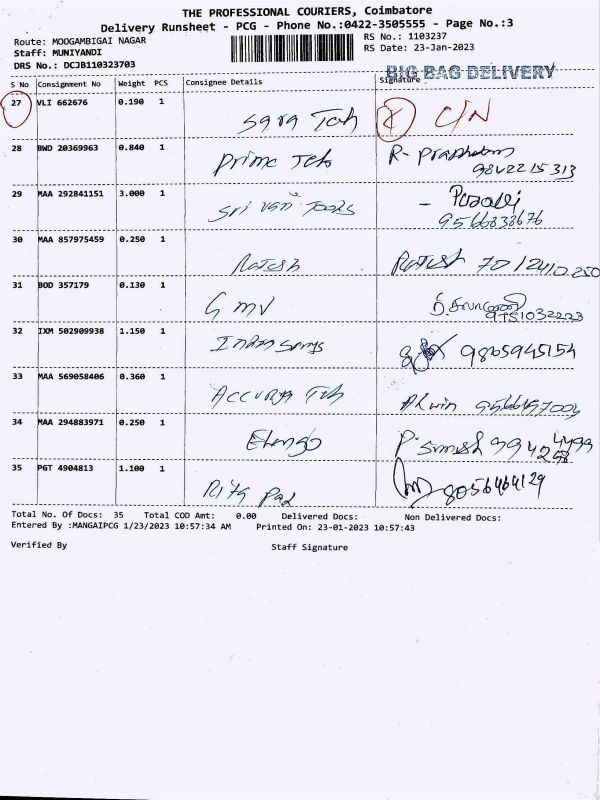 THE PROFESSIONAL COURIERS, Coimbatore
Delivery Runsheet - PCG - Phone No.:0422-3505555 - Page No.:3
Route: MOOGAMBIGAI NAGAR
Staff: MUNIYANDI
DRS No.: DCJB110323703
RS No.: 1103237
RS Date: 23-Jan-2023
BIG BAG DELIVERY
S No Consignment No Weight PCS Consignee Details Signature
27 VLI 662676 0.190 1 Sara Teh C/N
28 BWD 20369963 0.840 1 Prime Teh R- 9842215313
29 MAA 292841151 3.000 1 Sri Vari Tools 9566838676
30 MAA 857975459 0.250 1 Ratesh Ratesh 70/2410250
31 BOD 357179 0.130 1 GMV 9751032223
32 IXM 502909938 1.150 1 9865945154
33 MAA 569058406 0.360 1 Accurya Teh Alwin
34 MAA 294883971 0.250 1 Elango P. Suresh
35 PGT 4904813 1.100 1 8056464129
Total No. Of Docs: 35 Total COD Amt: 0.00 Delivered Docs: Non Delivered Docs:
Entered By :MANGAIPCG 1/23/2023 10:57:34 AM Printed On: 23-01-2023 10:57:43
Verified By Staff Signature